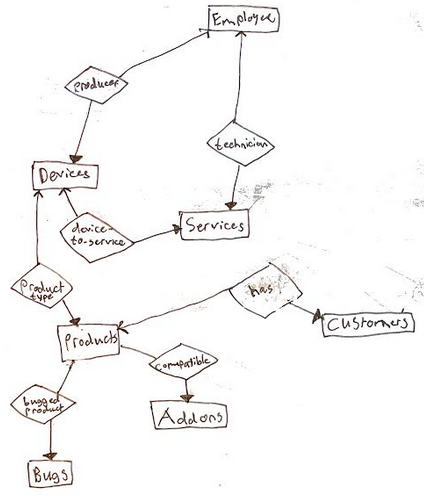 Employee
producer
technician
Devices
device-
to-service
Services
product
type
has
Customers
Products
compatible
bugged
product
Addons
Bugs